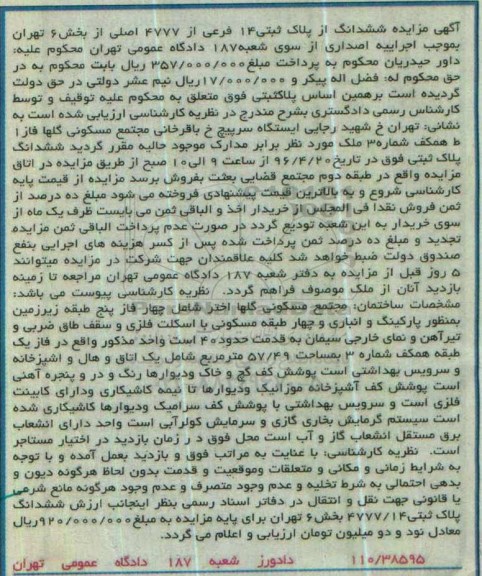 آگهی مزایده ششدانگ از پلاک ثبتی۱۴ فرعی از ۴۷۷۷ اصلی از بخش۶ تهران
بموجب اجراییه اصداری از سوی شعبه۱۸۷ دادگاه عمومی تهران محکوم علیه:
داور حیدریان محکوم به پرداخت مبلغ۳۵۷/۰۰۰/۰۰۰ ریال بابت محکوم به در
حق محکوم له: فضل اله پیکر و ۱۷/۰۰۰/۰۰۰ریال نیم عشر دولتی در حق دولت
گردیده است برهمین اساس پلاکثبتی فوق متعلق به محکوم علیه توقیف و توسط
کارشناس رسمی دادگستری بشرح مندرج در نظریه کارشناسی ارزیابی شده است به
نشانی: تهران خ شهید رجایی ایستگاه سرپیچ خ باقرخانی مجتمع مسکونی گلها فاز۱
ط همکف شماره۳ ملک مورد نظر برابر مدارک موجود حالیه مقرر گردید ششدانگ
پلاک ثبتی فوق در تاریخ۹۶/۴/۲۰ از ساعت ۹ الی۱۰ صبح از طریق مزایده در اتاق
مزایده واقع در طبقه دوم مجتمع قضایی بعثت بفروش برسد مزایده از قیمت پایه
کارشناسی شروع و به بالاترین قیمت پیشنهادی فروخته می شود مبلغ ده درصد از
ثمن فروش نقدا فی المجلس از خریدار اخذ و الباقی ثمن می بایست ظرف یک ماه از
سوی خریدار به این شعبه تودیع گردد در صورت عدم پرداخت الباقی ثمن مزایده
تجدید و مبلغ ده درصد ثمن پرداخت شده پس از کسر هزینه های اجرایی بنفع
صندوق دولت ضبط خواهد شد کلیه علاقمندان جهت شرکت در مزایده میتوانند
۵ روز قبل از مزایده به دفتر شعبه ۱۸۷ دادگاه عمومی تهران مراجعه تا زمینه
بازدید آنان از ملک موصوف فراهم گردد. نظریه کارشناسی پیوست می باشد:
مشخصات ساختمان: مجتمع مسکونی گلها اختر شامل چهار فاز پنج طبقه زیرزمین
بمنظور پارکینگ و انباری و چهار طبقه مسکونی با اسکلت فلزی و سقف طاق ضربی و
تیرآهن و نمای خارجی سیمان به قدمت حدود۴۰ است واحد مذکور واقع در فاز یک
طبقه همکف شماره ۳ بمساحت ۵۷/۴۹ مترمربع شامل یک اتاق و هال و اشپزخانه
و سرویس بهداشتی است پوشش کف گچ و خاک ودیوارها رنگ و در و پنجره آهنی
است پوشش کف آشپزخانه موزائیک ودیوارها تا نیمه کاشیکاری ودارای کابینت
فلزی است و سرویس بهداشتی با پوشش کف سرامیک ودیوارها کاشیکاری شده
است سیستم گرمایش بخاری گازی و سرمایش کولرآبی است واحد دارای انشعاب
برق مستقل انشعاب گاز و آب است محل فوق د ر زمان بازدید در اختیار مستاجر
است. نظریه کارشناسی: با عنایت به مراتب فوق و بازدید بعمل آمده و با توجه
به شرایط زمانی و مکانی و متعلقات وموقعیت و قدمت بدون لحاظ هرگونه دیون و
بدهی احتمالی به شرط تخلیه و عدم وجود متصرف و عدم وجود هرگونه مانع شرعی
یا قانونی جهت نقل و انتقال در دفاتر اسناد رسمی بنظر اینجانب ارزش ششدانگ
پلاک ثبتی۴۷۷۷/۱۴ بخش۶ تهران برای پایه مزایده به مبلغ۹۲۰/۰۰۰/۰۰۰ریال
معادل نود و دو میلیون تومان ارزیابی و اعلام می گردد.
۱۱۰/۳۸۵۹۵ دادورز شعبه ۱۸۷ دادگاه عمومی تهران